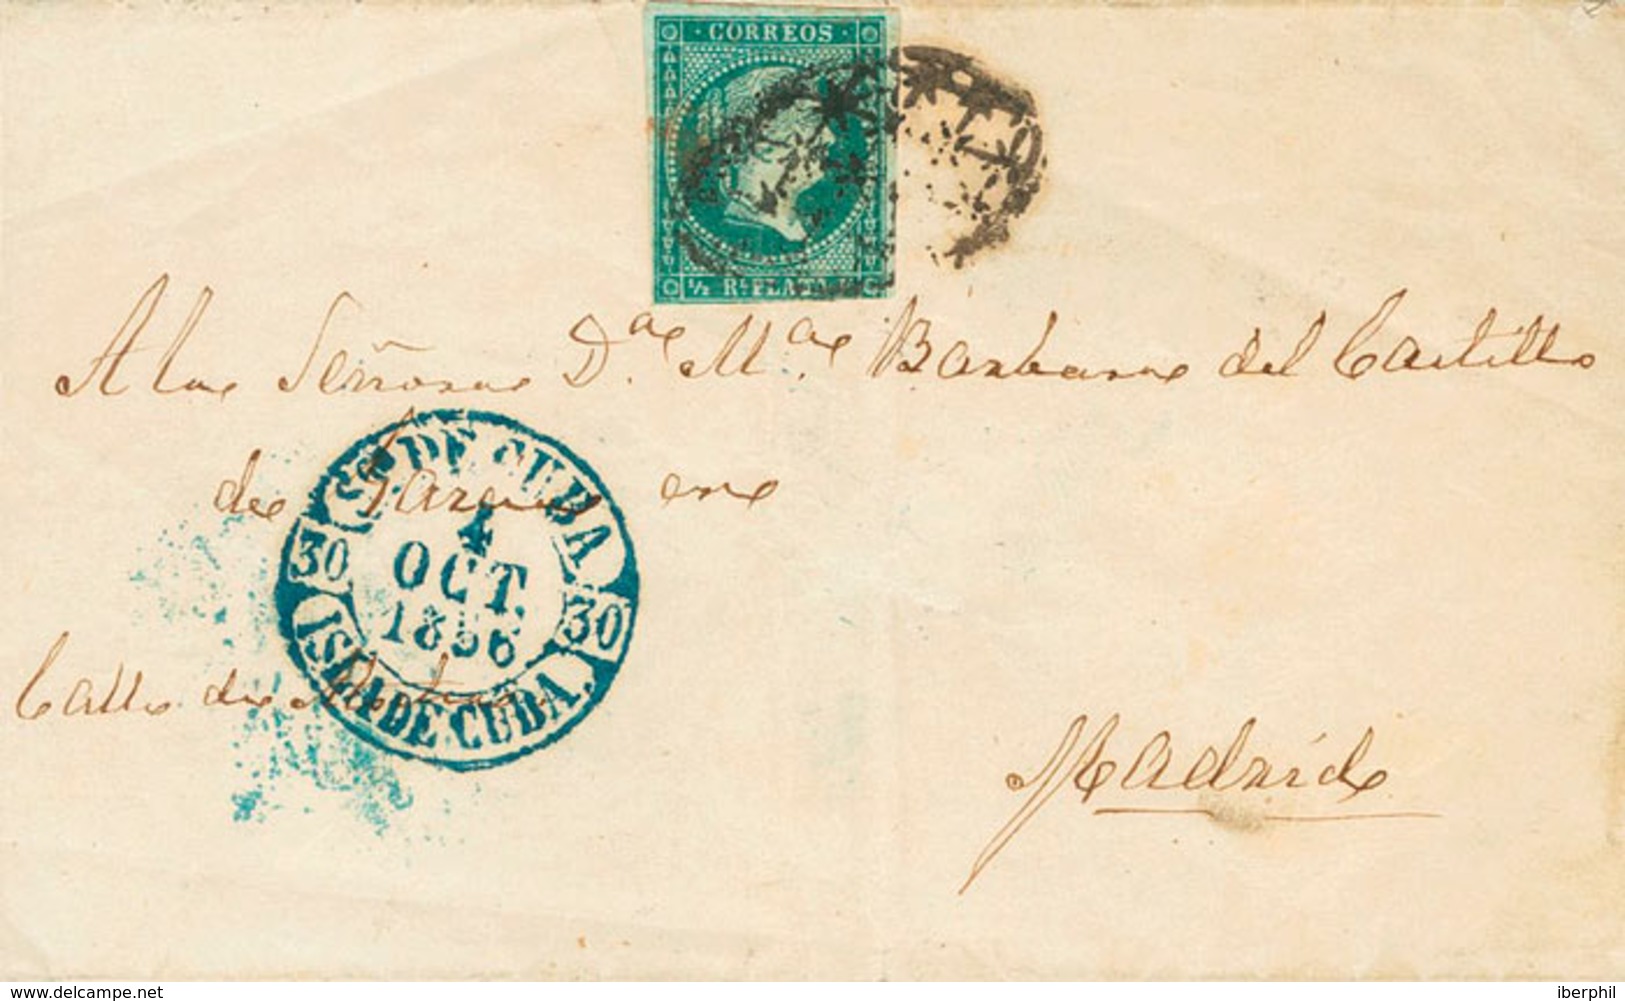 CORREOS
1/2 Rl. PLATA
A la Señora Da. Ma. Barbara del Castillo
de en
SO. DE CUBA
4
OCT.
1856
30 30
ISLA DE CUBA.
Calle de
Madrid
www.delcampe.net
iberphil